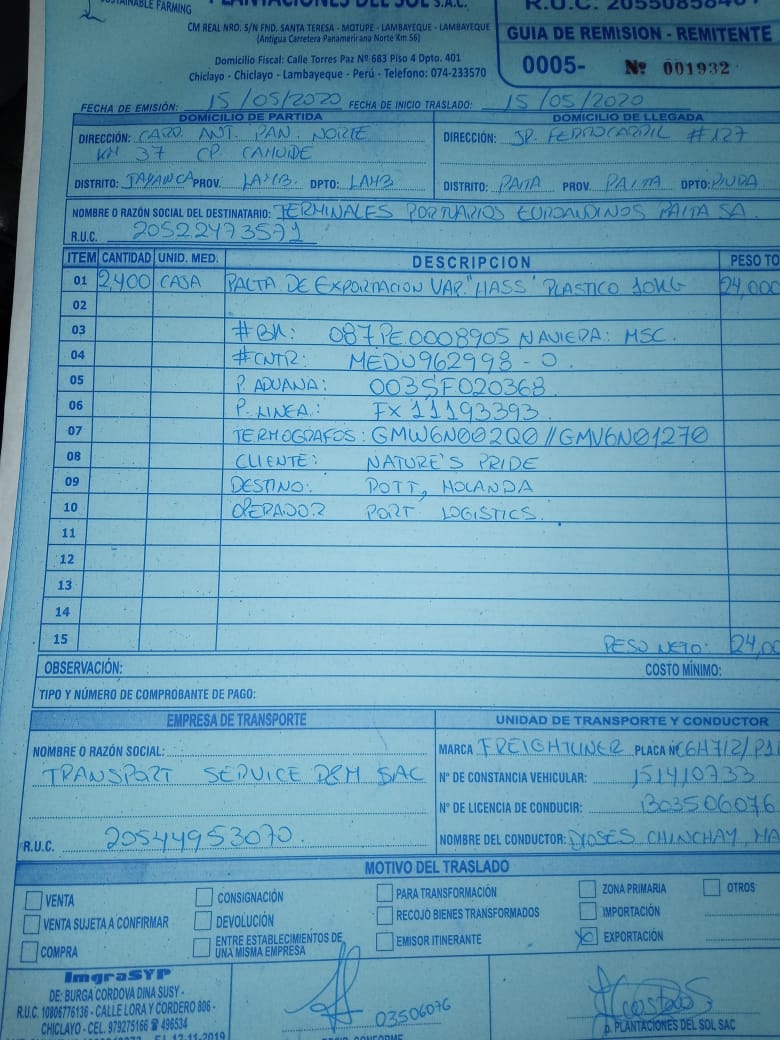 SUSTAINABLE FARMING
PLANTACIONES DEL SOL S.A.C.
CM REAL NRO. S/N FND. SANTA TERESA - MOTUPE - LAMBAYEQUE - LAMBAYEQUE
(Antigua Carretera Panamericana Norte Km 56)
Domicilio Fiscal: Calle Torres Paz Nº 683 Piso 4 Dpto. 401
Chiclayo - Chiclayo - Lambayeque - Perú - Telefono: 074-233570
R.U.C.
GUIA DE REMISION - REMITENTE
0005- Nº 001932
FECHA DE EMISIÓN: 15/05/2020 FECHA DE INICIO TRASLADO: 15/05/2020
DOMICILIO DE PARTIDA DOMICILIO DE LLEGADA
DIRECCIÓN: CARR. ANT. PAN. NORTE DIRECCIÓN: JR. FERROCARRIL #127
KM 37 CP. CAHUIDE
DISTRITO: JAYANCA PROV. LAMB. DPTO: LAMB DISTRITO: PAITA PROV. PAITA DPTO: PIURA
NOMBRE O RAZÓN SOCIAL DEL DESTINATARIO: TERMINALES PORTUARIOS EUROANDINOS PAITA SA.
R.U.C. 20522473571
ITEM CANTIDAD UNID. MED. DESCRIPCION PESO TO
01 2,400 CAJA PALTA DE EXPORTACION VAR. "HASS" PLASTICO 10KG 24,000
02
03 #BK: 087PE0008905 NAVIERA: MSC.
04 #CNTR: MEDU962998-0.
05 P. ADUANA: 003SF020368
06 P. LINEA: FX11193393
07 TERMOGRAFOS: GMW6N002Q0//GMV6N01270
08 CLIENTE: NATURE'S PRIDE
09 DESTINO: ROTT, HOLANDA
10 OPERADOR PORT LOGISTICS.
11
12
13
14
15 PESO NETO: 24,00
OBSERVACIÓN: COSTO MÍNIMO:
TIPO Y NÚMERO DE COMPROBANTE DE PAGO:
EMPRESA DE TRANSPORTE UNIDAD DE TRANSPORTE Y CONDUCTOR
NOMBRE O RAZÓN SOCIAL: MARCA FREIGHTLINER PLACA Nº
TRANSPORT SERVICE D&M SAC Nº DE CONSTANCIA VEHICULAR: 151410733
Nº DE LICENCIA DE CONDUCIR: B03506076
R.U.C. 20544953070. NOMBRE DEL CONDUCTOR: DIOSES CHINCHAY, MA
MOTIVO DEL TRASLADO
VENTA CONSIGNACIÓN PARA TRANSFORMACIÓN ZONA PRIMARIA OTROS
VENTA SUJETA A CONFIRMAR DEVOLUCIÓN RECOJO BIENES TRANSFORMADOS IMPORTACIÓN
COMPRA ENTRE ESTABLECIMIENTOS DE UNA MISMA EMPRESA EMISOR ITINERANTE EXPORTACIÓN
ImgraSYP
DE: BURGA CORDOVA DINA SUSY -
R.U.C. 10806776136 - CALLE LORA Y CORDERO 806 -
CHICLAYO - CEL. 979275166 ☎ 496534
03506076
p. PLANTACIONES DEL SOL SAC